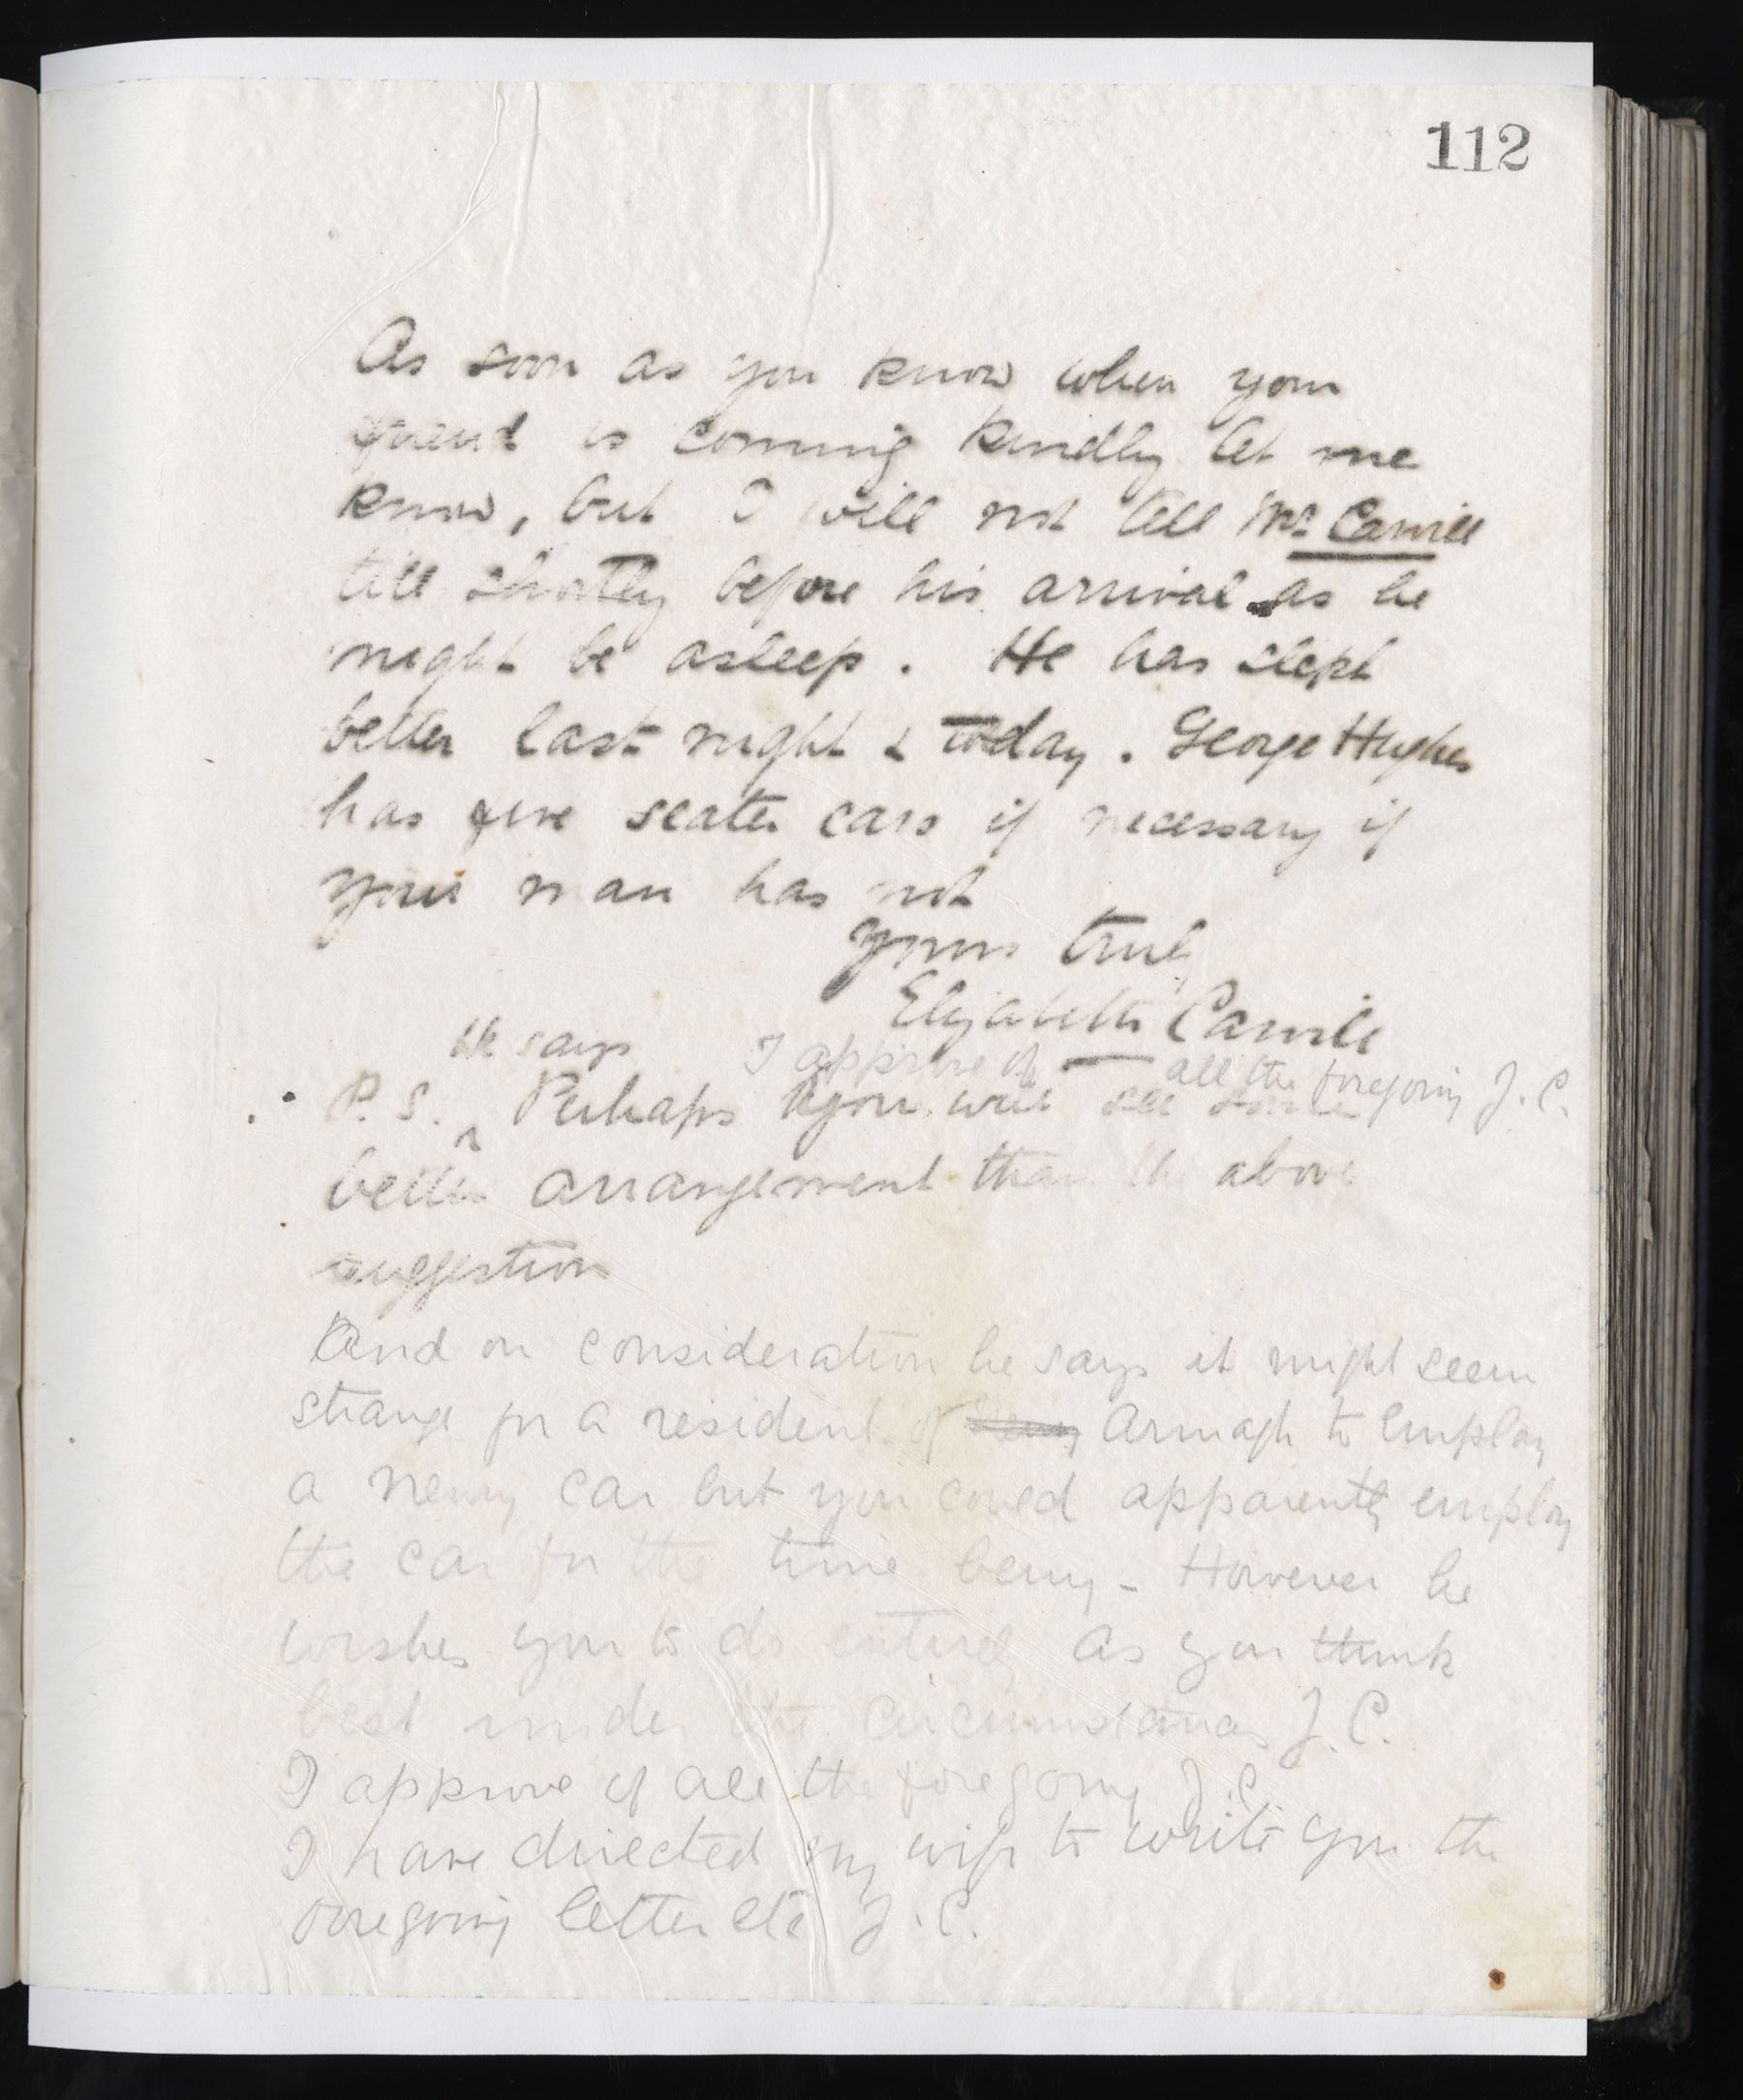 112
As soon as you know when your
friend is coming kindly let me
know, but I will not tell Mr. Carvill
till shortly before his arrival as he
might be asleep. He has slept
better last night & today. George Hughes
has five seater cars if necessary if
your man has not
yours truly
Elizabeth Carvill
He says I approve of all the foregoing J.C.
P.S. ^ Perhaps you will see some
better arrangement than the above
suggestion
And on consideration he says it might seem
strange for a resident of Armagh to employ
a Newry car but you could apparently employ
the car for the time being - However he
wishes you to do entirely as you think
best under the circumstances J.C.
I approve of all the foregoing J.C.
I have directed my wife to write you the
foregoing letter etc J.C.